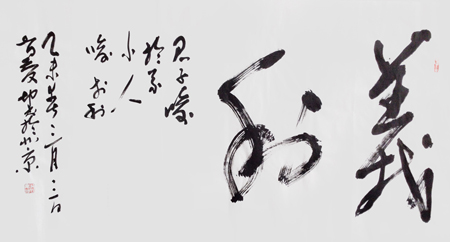 義利
君子喻
於義
小人
喻於利
乙未春三月三日
於北京